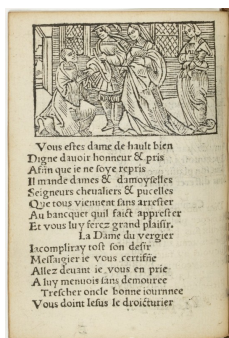 Vous estes dame de hault bien
Digne dauoir honneur & pris
Afin que ie ne soye repris
Il mande dames & damoyselles
Seigneurs cheualiers & pucelles
Que tous viennent sans arrester
Au bancquet quil faict apprester
Et vous luy ferez grand plaisir.
La Dame du vergier
Iacompliray tost son desir
Messaigier ie vous certifie
Allez deuant ie vous en prie
A luy menuois sans demouree
Trescher oncle bonne iournnee
Vous doint Iesus le droicturier